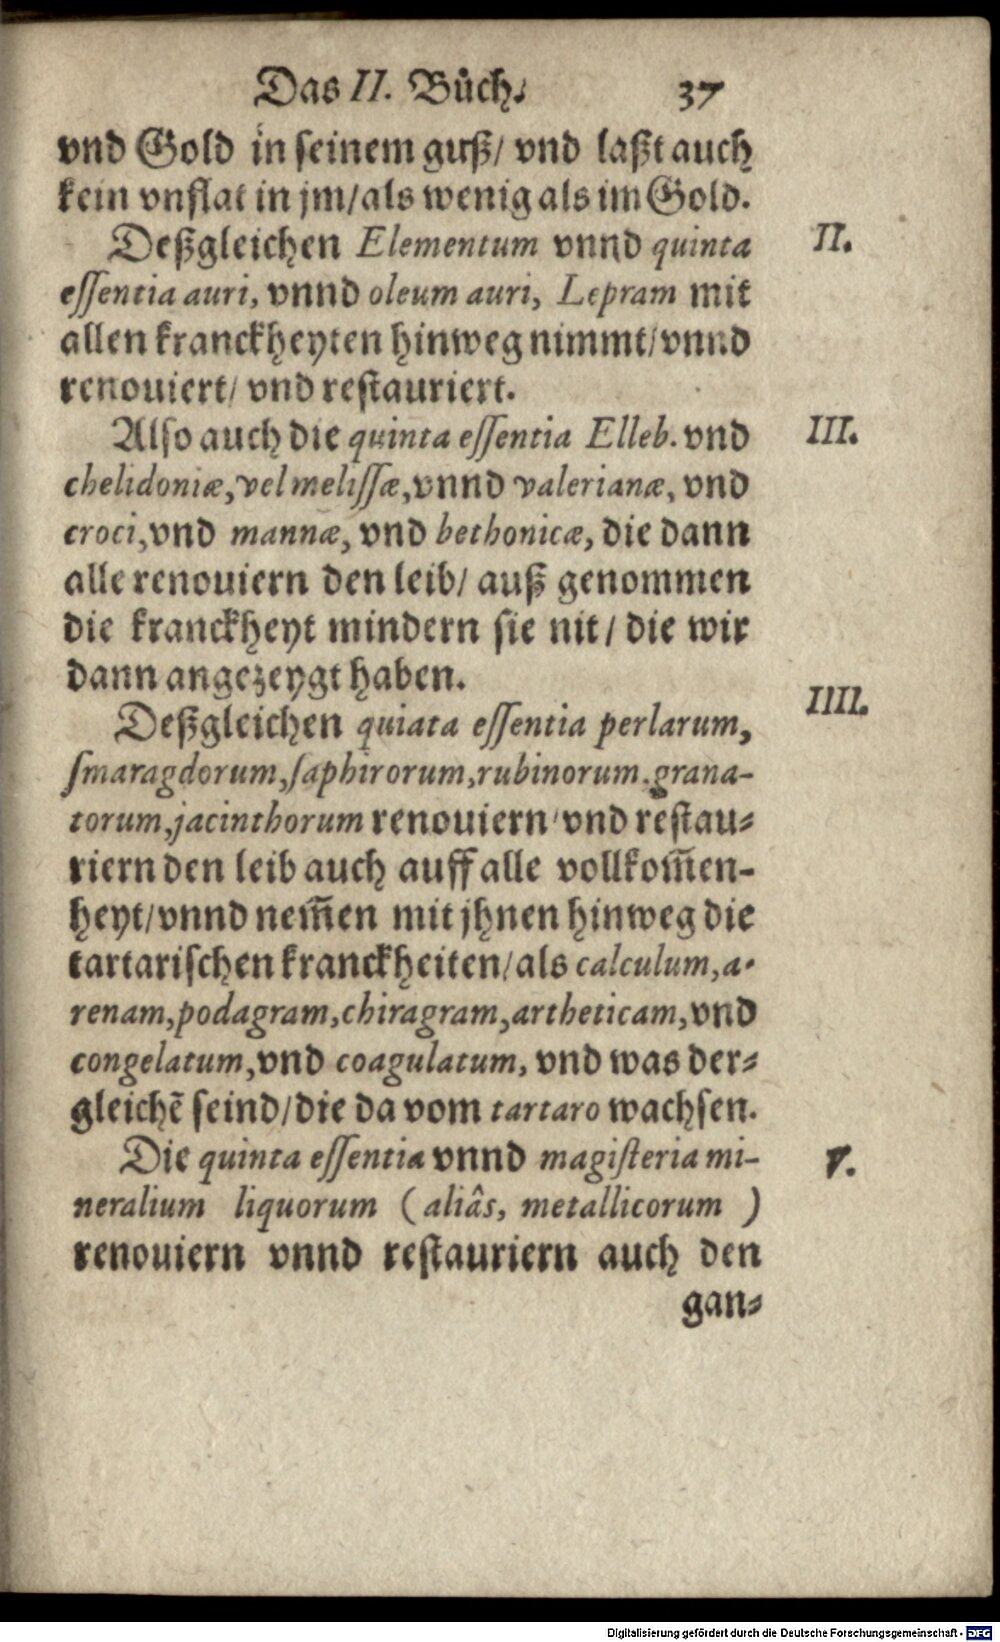 Das II. Bůch. 37
vnd Gold in seinem guß/ vnd laßt auch
kein vnflat in jm/als wenig als im Gold.
Deßgleichen Elementum vnnd quinta II.
essentia auri, vnnd oleum auri, Lepram mit
allen kranckheyten hinweg nimmt/vnnd
renouiert/ vnd restauriert.
Also auch die quinta essentia Elleb. vnd III.
chelidoniæ, vel melissæ, vnnd valerianæ, vnd
croci, vnd mannæ, vnd bethonicæ, die dann
alle renouiern den leib/ auß genommen
die kranckheyt mindern sie nit/ die wir
dann angezeygt haben.
Deßgleichen quiata essentia perlarum, IIII.
smaragdorum, saphirorum, rubinorum. grana-
torum, jacinthorum renouiern/vnd restau-
riern den leib auch auff alle vollkom̃en-
heyt/vnnd nem̃en mit jhnen hinweg die
tartarischen kranckheiten/als calculum, a-
renam, podagram, chiragram, artheticam, vnd
congelatum, vnd coagulatum, vnd was der-
gleichẽ seind/die da vom tartaro wachsen.
Die quinta essentia vnnd magisteria mi- V.
neralium liquorum (aliâs, metallicorum )
renouiern vnnd restauriern auch den
gan-
Digitalisierung gefördert durch die Deutsche Forschungsgemeinschaft - DFG